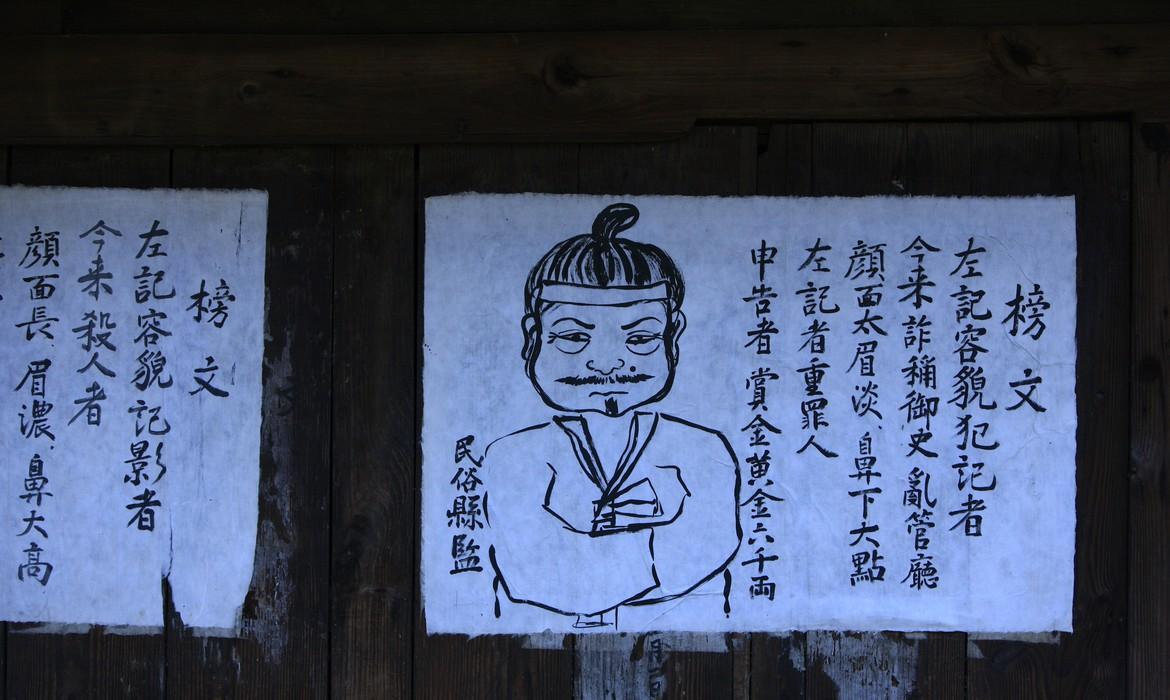 榜文
左記容貌犯記者
今来詐稱御史亂管廳
顔面太眉淡、鼻下大點
左記者重罪人
申告者 賞金黄金六千両
民俗縣監
榜文
左記容貌記影者
今来殺人者
顔面長 眉濃、鼻大高